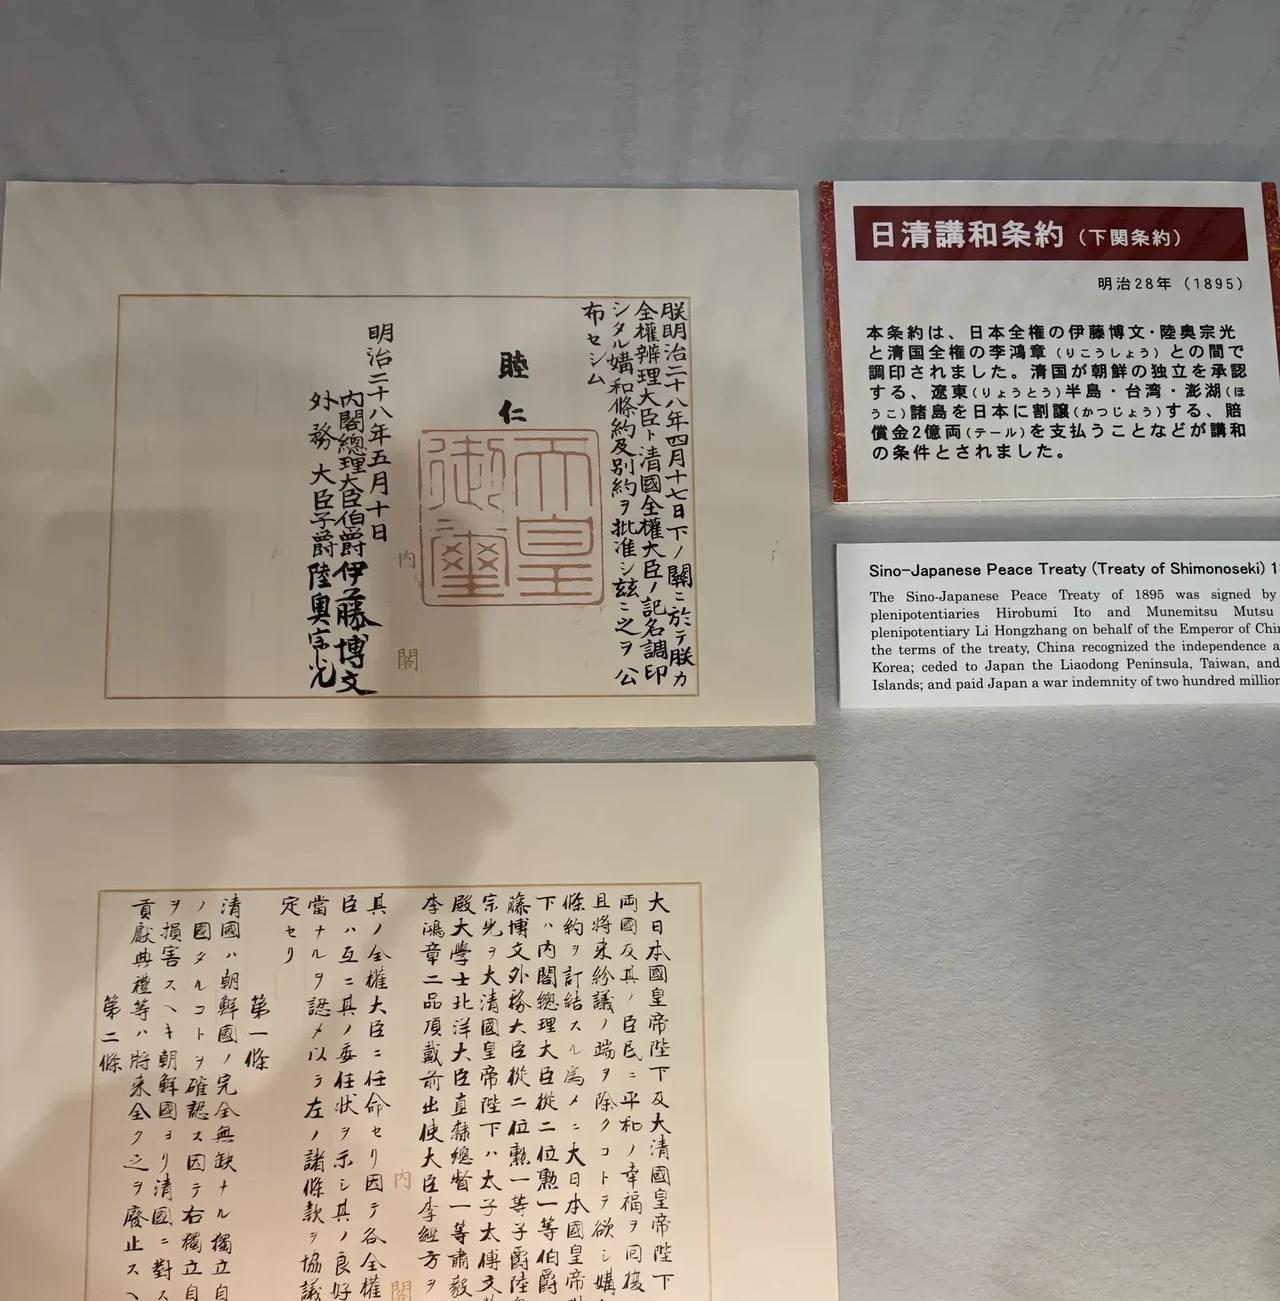 朕明治二十八年四月十七日下ノ關ニ於テ朕カ
全權辨理大臣ト清國全權大臣ノ記名調印
シタル媾和條約及別約ヲ批准シ玆ニ之ヲ公
布セシム
睦仁
天皇
御璽
明治二十八年五月十日
內閣總理大臣伯爵伊藤博文
外務大臣子爵陸奧宗光
內閣
日清講和条約(下関条約)
明治28年(1895)
本条約は、日本全権の伊藤博文・陸奥宗光
と清国全権の李鴻章(りこうしょう)との間で
調印されました。清国が朝鮮の独立を承認
する、遼東(りょうとう)半島・台湾・澎湖(ほ
うこ)諸島を日本に割譲(かつじょう)する、賠
償金2億両(テール)を支払うことなどが講和
の条件とされました。
Sino-Japanese Peace Treaty (Treaty of Shimonoseki) 1
The Sino-Japanese Peace Treaty of 1895 was signed by
plenipotentiaries Hirobumi Ito and Munemitsu Mutsu
plenipotentiary Li Hongzhang on behalf of the Emperor of Chin
the terms of the treaty, China recognized the independence a
Korea; ceded to Japan the Liaodong Peninsula, Taiwan, and
Islands; and paid Japan a war indemnity of two hundred million
大日本國皇帝陛下及大清國皇帝陛下
兩國及其ノ臣民ニ平和ノ幸福ヲ回復
且將來紛議ノ端ヲ除クコトヲ欲シ媾
條約ヲ訂結スル為メニ大日本國皇帝
下ハ內閣總理大臣從二位勲一等伯爵
藤博文外務大臣從二位勲一等子爵陸
宗光ヲ大清國皇帝陛下ハ太子太傅文
殿大學士北洋大臣直隷總督一等肅毅
李鴻章二品頂戴前出使大臣李經方ヲ
其ノ全權大臣ニ任命セリ因テ各全權
臣ハ互ニ其ノ委任狀ヲ示シ其ノ良好
當ナルヲ認メ以テ左ノ諸條款ヲ協議
定セリ
第一條
清國ハ朝鮮國ノ完全無缺ナル獨立自
ノ國タルコトヲ確認ス因テ右獨立自
ヲ損害スヘキ朝鮮國ヨリ清國ニ對ス
貢獻典禮等ハ將來全ク之ヲ廢止スヘ
第二條
內閣